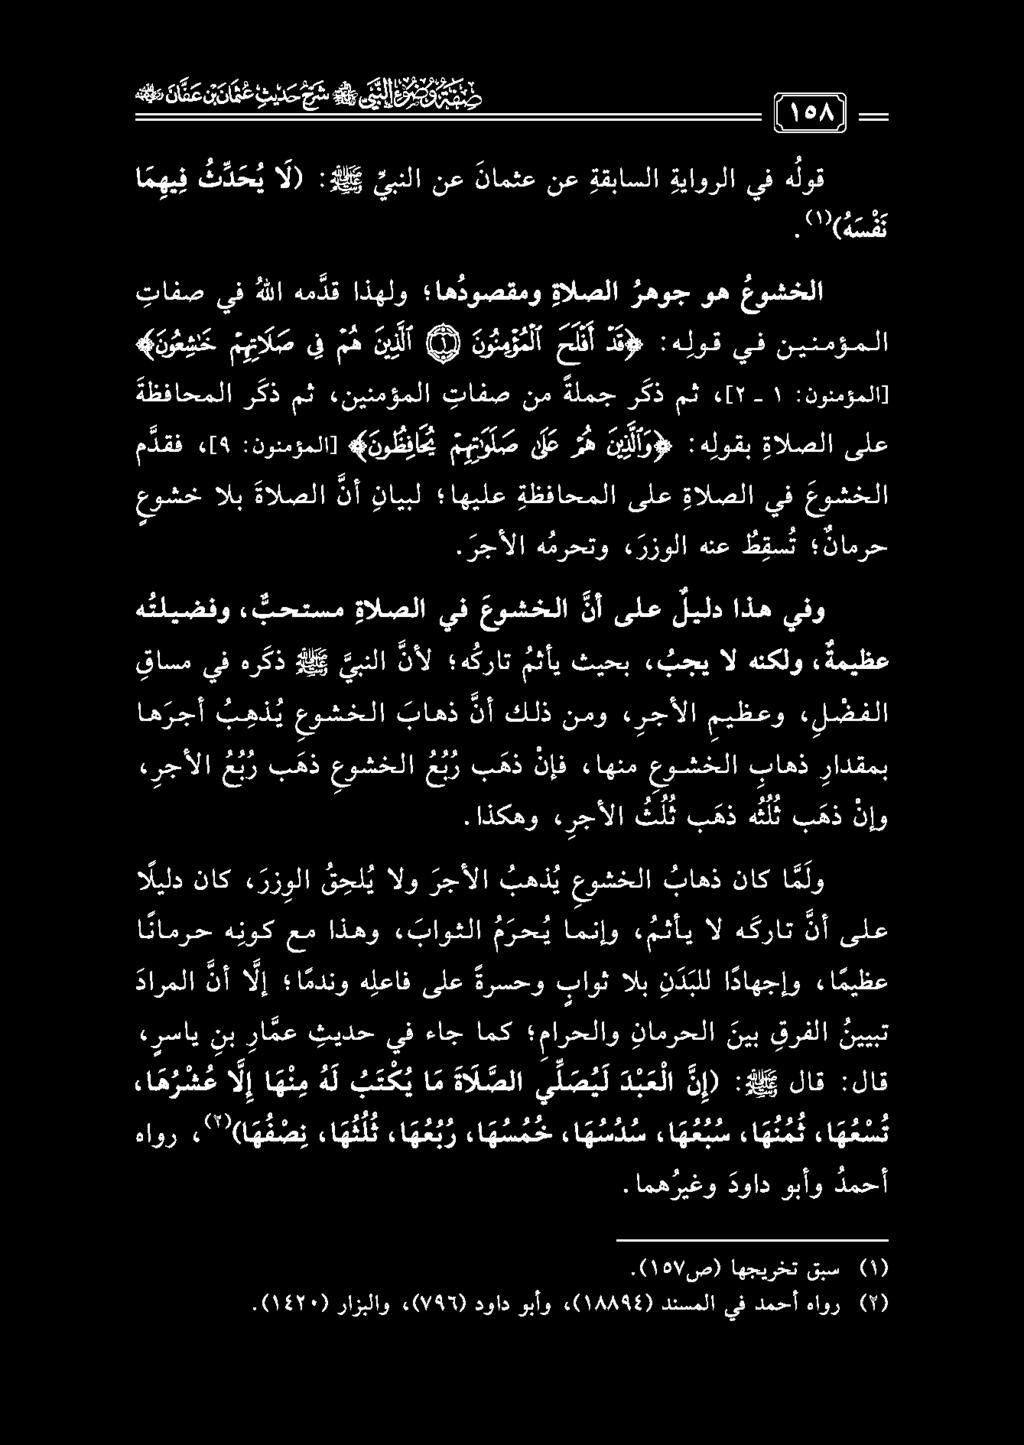 صِفَةُ وُضُوءِ النَّبِيِّ ﷺ شَرْحُ حَدِيثِ عُثْمَانَ بْنِ عَفَّانَ رضي الله عنه
١٥٨
قولُه في الروايةِ السابقةِ عن عثمانَ عن النبيِّ ﷺ: (لَا يُحَدِّثُ فِيهِمَا
نَفْسَهُ)(١).
الخشوعُ هو جوهرُ الصلاةِ ومقصودُها؛ ولهذا قدَّمه اللهُ في صفاتِ
المؤمنين في قولِه: ﴿قَدْ أَفْلَحَ ٱلْمُؤْمِنُونَ ١ ٱلَّذِينَ هُمْ فِى صَلَاتِهِمْ خَٰشِعُونَ﴾
[المؤمنون: ١ ـ ٢]، ثم ذكَر جملةً من صفاتِ المؤمنين، ثم ذكَر المحافظةَ
على الصلاةِ بقولِه: ﴿وَٱلَّذِينَ هُمْ عَلَىٰ صَلَوَٰتِهِمْ يُحَافِظُونَ﴾ [المؤمنون: ٩]، فقدَّم
الخشوعَ في الصلاةِ على المحافظةِ عليها؛ لبيانِ أنَّ الصلاةَ بلا خشوعٍ
حرمانٌ؛ تُسقِطُ عنه الوزرَ، وتحرمُه الأجرَ.
وفي هذا دليلٌ على أنَّ الخشوعَ في الصلاةِ مستحبٌّ، وفضيلتُه
عظيمةٌ، ولكنه لا يجبُ، بحيث يأثمُ تاركُه؛ لأنَّ النبيَّ ﷺ ذكَره في مساقِ
الفضْلِ، وعظيمِ الأجرِ، ومن ذلك أنَّ ذهابَ الخشوعِ يُذهِبُ أجرَها
بمقدارِ ذهابِ الخشوعِ منها، فإنْ ذهَب رُبُعُ الخشوعِ ذهَب رُبُعُ الأجرِ،
وإنْ ذهَب ثُلُثُه ذهَب ثُلُثُ الأجرِ، وهكذا.
ولَمَّا كان ذهابُ الخشوعِ يُذهبُ الأجرَ ولا يُلحِقُ الوزرَ، كان دليلًا
على أنَّ تاركَه لا يأثمُ، وإنما يُحرَمُ الثوابَ، وهذا مع كونِه حرمانًا
عظيمًا، وإجهادًا للبَدَنِ بلا ثوابٍ وحسرةً على فاعلِه وندمًا؛ إلَّا أنَّ المرادَ
تبيينُ الفرقِ بينَ الحرمانِ والحرامِ؛ كما جاء في حديثِ عمَّارِ بنِ ياسرٍ،
قال: قال ﷺ: (إِنَّ الْعَبْدَ لَيُصَلِّي الصَّلَاةَ مَا يُكْتَبُ لَهُ مِنْهَا إِلَّا عُشْرُهَا،
تُسْعُهَا، ثُمُنُهَا، سُبُعُهَا، سُدُسُهَا، خُمُسُهَا، رُبُعُهَا، ثُلُثُهَا، نِصْفُهَا)(٢)، رواه
أحمدُ وأبو داودَ وغيرُهما.
(١) سبق تخريجها (ص١٥٧).
(٢) رواه أحمد في المسند (١٨٨٩٤)، وأبو داود (٧٩٦)، والبزار (١٤٢٠).